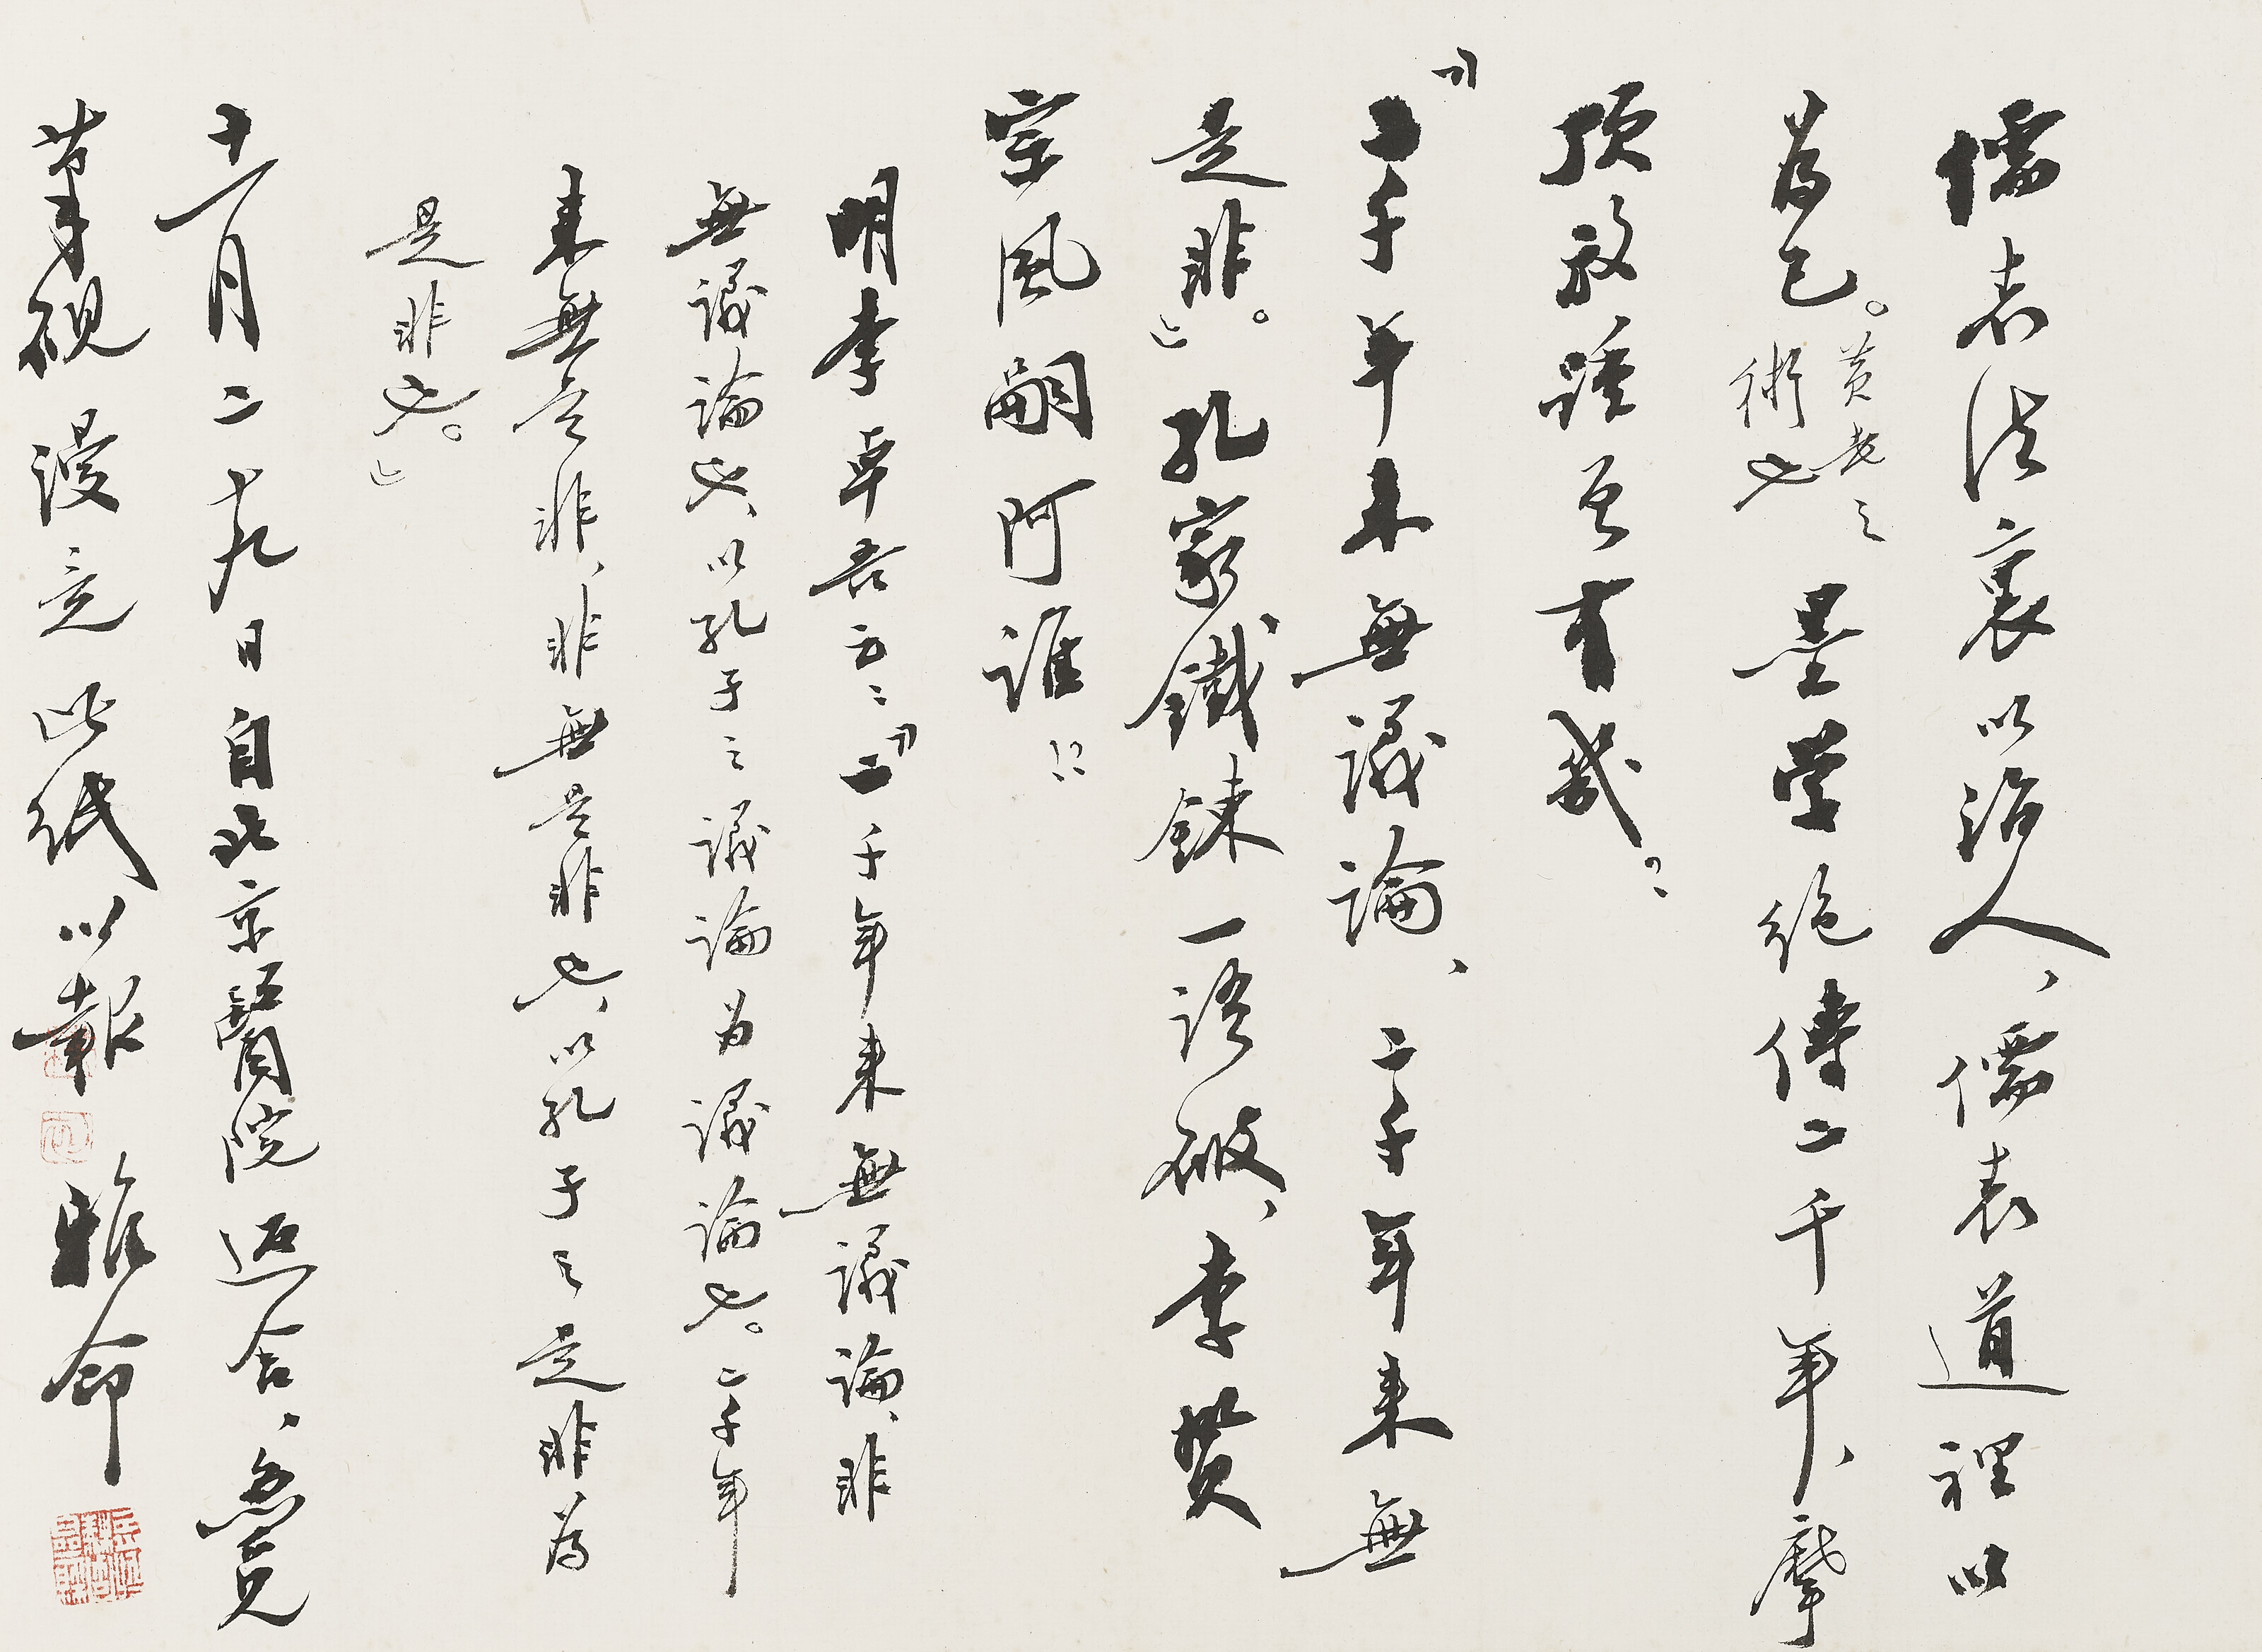 儒表法裏以治人、儒表道裡以
為己。黄老之術也 墨学絶傳二千年、摩
頂放踵更有幾？
「二千年来無議論、二千年来無
是非。」孔家鐵鍊一語破、李贄
宗風嗣阿誰？
明李卓吾云：「二千年来無議論、非
無議論也、以孔子之議論为議論也。二千年
来無是非、非無是非也、以孔子之是非為
是非也。」
十一月二十九日自北京醫院返舍、急覓
筆硯漫竟此紙以報 雅命